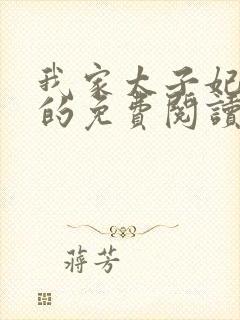 我家太子妃
的免費閱讀
蔣芳